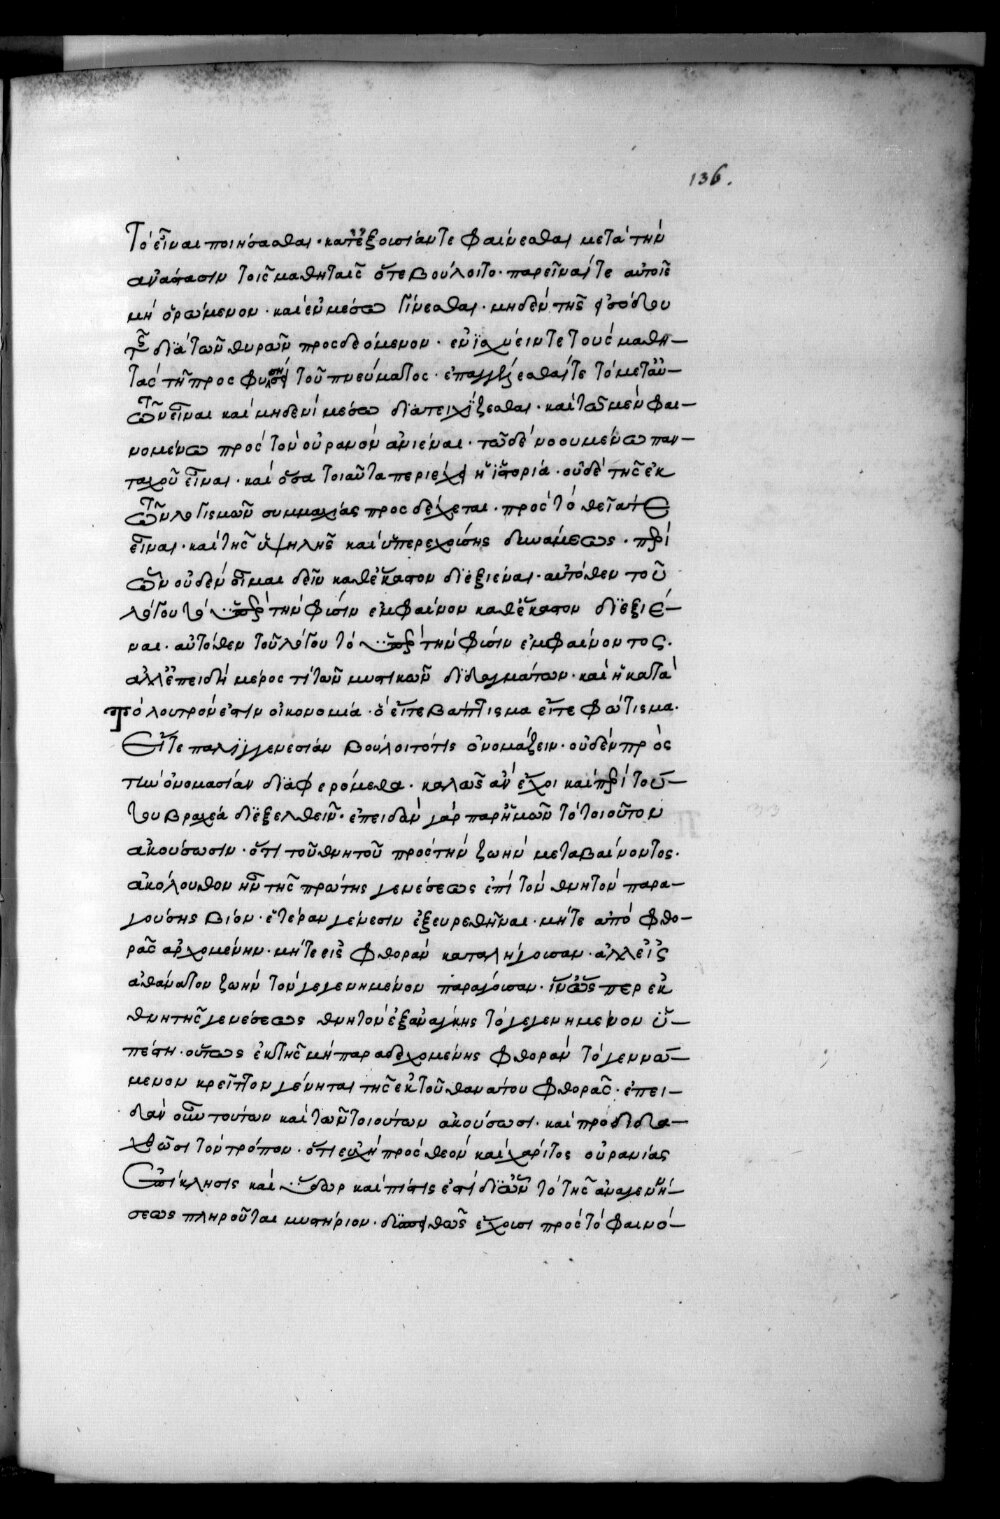 136.
Τὸ εἶναι ποιήσασθαι· κατἐξουσίαν τε φαίνεσθαι μετὰ τὴν
ἀνάστασιν τοῖς μαθηταῖς ὅτε βούλοιτο· παρεῖναί τε αὐτοῖς
μὴ ὁρώμενον· καὶ ἐν μέσω γίνεσθαι· μηδὲν τῆς εἰσόδου
τῆς διὰ τῶν θυρῶν προσδεόμενον· ἐνισχύειν τε τοὺς μαθη–
τὰς τῆ προσφυσήσει τοῦ πνεύματος· ἐπαγγέλεσθαί τε τὸ μεταὐ–
τῶν εἶναι καὶ μηδενὶ μέσω διατειχίζεσθαι· καὶ τῶ μὲν φαι–
νομένω πρὸς τὸν οὐρανὸν ἀνιέναι· τῶ δὲ νοουμένω παν–
ταχοῦ εἶναι· καὶ ὅσα τοιαῦτα περιέχει ἡ ἱστορία· οὐδὲ τῆς ἐκ
τῶν λογισμῶν συμμαχίας προσδέχεται· πρὸς τὸ θεῖά τε
εἶναι· καὶ τῆς ὑψηλῆς καὶ ὑπερεχούσης δυνάμεως· περὶ
ὧν οὐδὲν οἶμαι δεῖν καθέκαστον διεξιέναι· αὐτόθεν τοῦ
λόγου τὸ ὑπὲρ τὴν φύσιν ἐμφαίνον καθέκαστον διεξιέ–
ναι· αὐτόθεν τοῦ λόγου τὸ ὑπὲρ τὴν φύσιν ἐμφαίνοντος.
ἀλλἐπειδὴ μέρος τι τῶν μυστικῶν διδαγμάτων· καὶ ἡ κατὰ
τὸ λουτρὸν ἐστὶν οἰκονομία· ὃ εἴτε βάπτισμα εἴτε φώτισμα·
Εἴτε παλιγγενεσίαν βούλοιτό τις ὀνομάζειν· οὐδὲν πρὸς
τὴν ὀνομασίαν διαφερόμεθα· καλῶς ἂν ἔχοι καὶ περὶ τού–
του βραχέα διεξελθεῖν· ἐπειδὰν γὰρ παρἡμῶν τὸ τοιοῦτον
ἀκούσωσιν· ὅτι τοῦ θνητοῦ πρὸς τὴν ζωὴν μεταβαίνοντος·
ἀκόλουθον ἦν τῆς πρώτης γενέσεως ἐπὶ τὸν θνητὸν παρα–
γούσης βίον· ἑτέραν γένεσιν ἐξευρεθῆναι· μήτε ἀπὸ φθο–
ρᾶς ἀρχομένην· μήτε εἰς φθορὰν καταλήγουσαν· ἀλλεἰς
ἀθάνατον ζωὴν τὸν γεγενημένον παράγουσαν· ἵνὥσπερ ἐκ
θνητῆς γενέσεως θνητὸν ἐξανάγκης τὸ γεγενημένον ὑ–
πέστη· οὕτως ἐκ τῆς μὴ παραδεχομένης φθορὰν τὸ γεννώ–
μενον κρεῖττον γένηται τῆς ἐκ τοῦ θανάτου φθορᾶς· ἐπει–
δὰν οὖν τούτων καὶ τῶν τοιούτων ἀκούσωσι· καὶ προδιδα–
χθῶσι τὸν τρόπον· ὅτι εὐχὴ πρὸς θεὸν καὶ χάριτος οὐρανίας
ἐπίκλησις καὶ ὕδωρ καὶ πίστις ἐστὶ διὧν τὸ τῆς ἀναγεννή–
σεως πληροῦται μυστήριον· δυσπειθῶς ἔχουσι πρὸς τὸ φαινό–